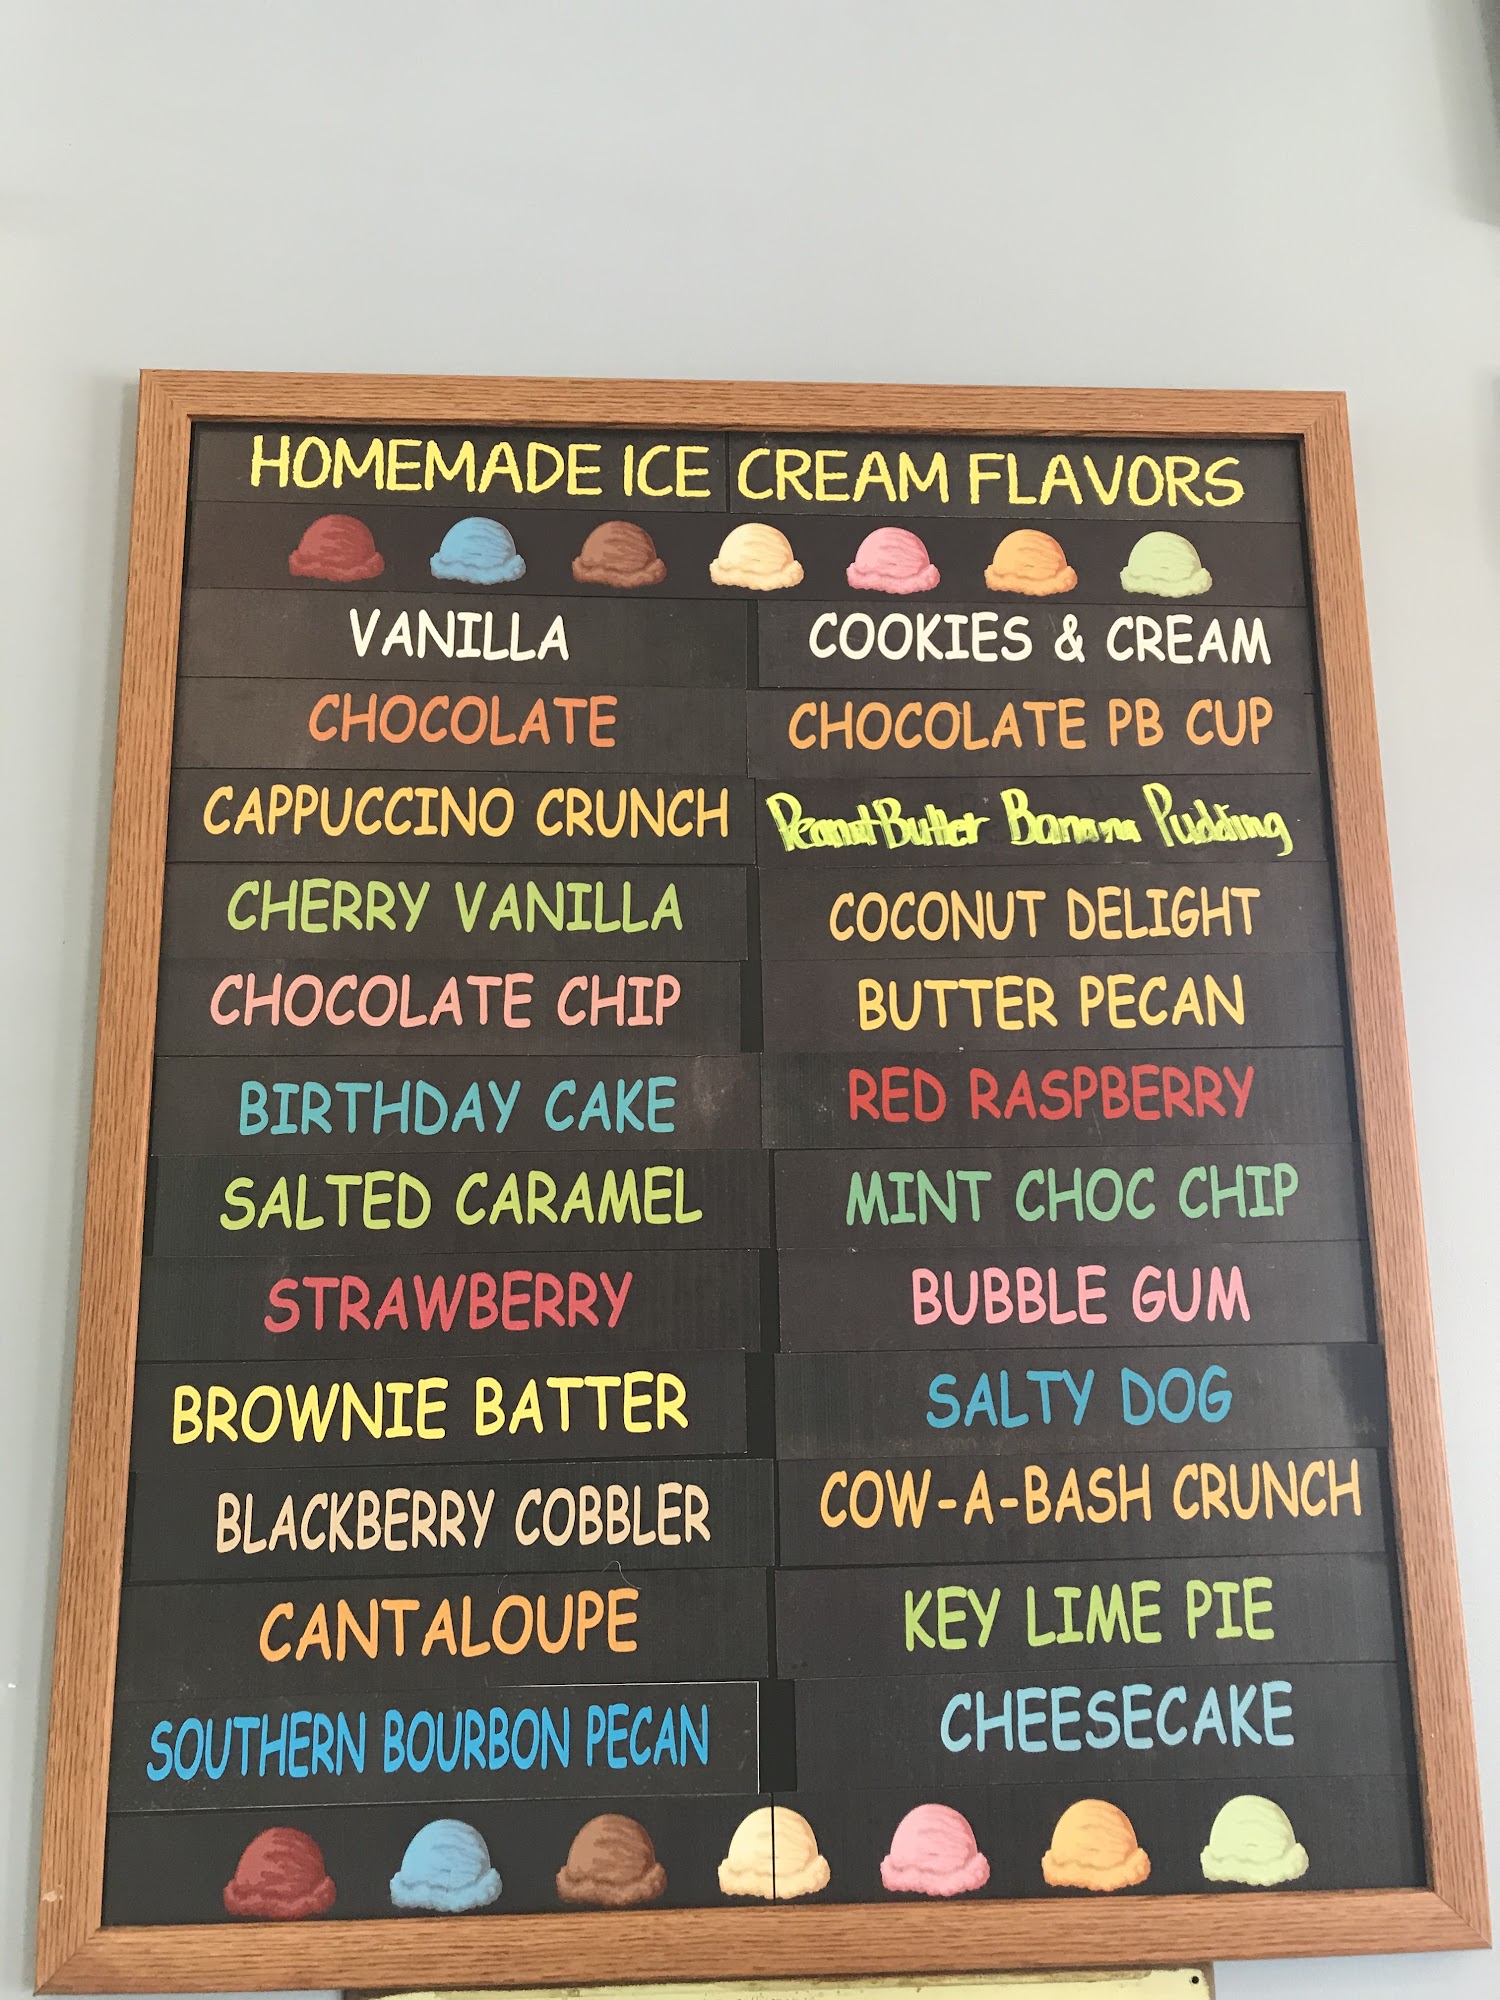 HOMEMADE ICE CREAM FLAVORS
VANILLA
CHOCOLATE
CAPPUCCINO CRUNCH
CHERRY VANILLA
CHOCOLATE CHIP
BIRTHDAY CAKE
SALTED CARAMEL
STRAWBERRY
BROWNIE BATTER
BLACKBERRY COBBLER
CANTALOUPE
SOUTHERN BOURBON PECAN
COOKIES & CREAM
CHOCOLATE PB CUP
Peanut Butter Banana Pudding
COCONUT DELIGHT
BUTTER PECAN
RED RASPBERRY
MINT CHOC CHIP
BUBBLE GUM
SALTY DOG
COW-A-BASH CRUNCH
KEY LIME PIE
CHEESECAKE